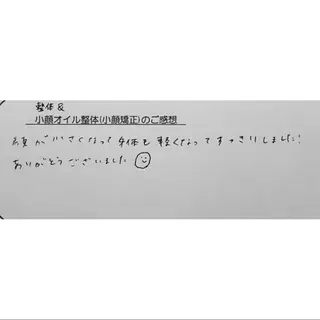 整体&
小顔オイル整体(小顔矯正)のご感想
顔が小さくなって身体も軽くなってすっきりしました!
ありがとうございました